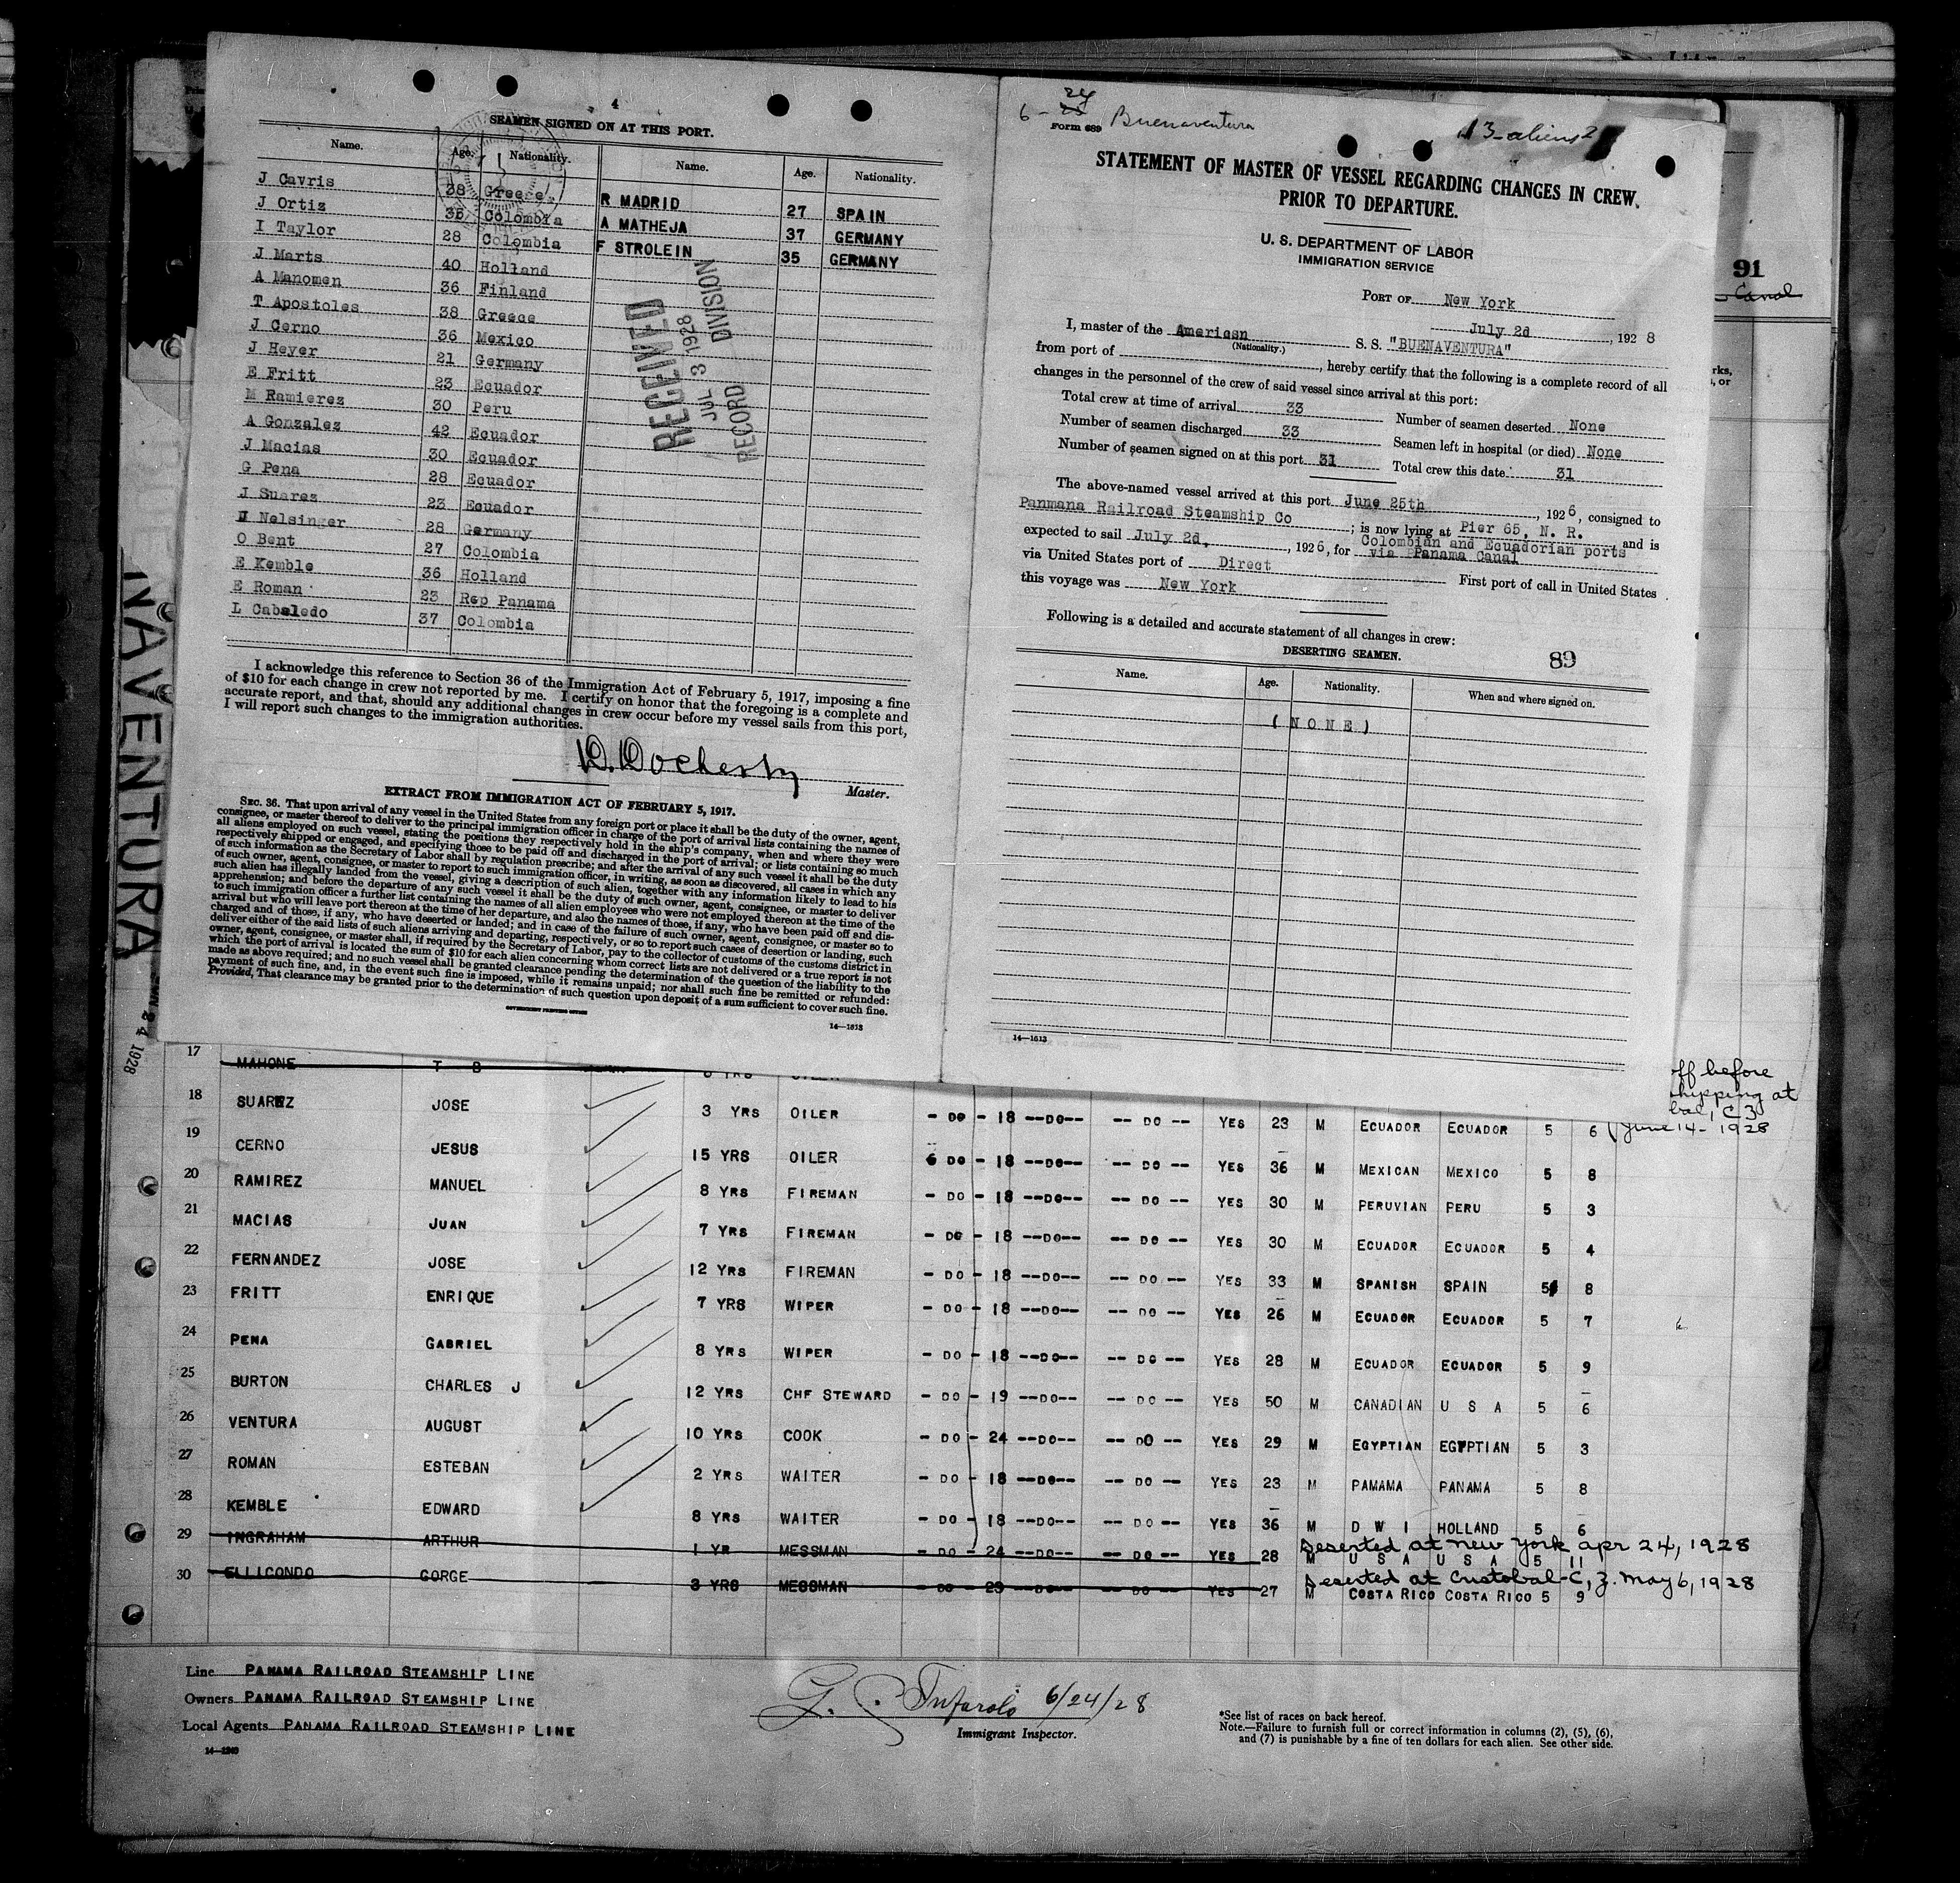 4
SEAMEN SIGNED ON AT THIS PORT.
Name. Age. Nationality. Name. Age. Nationality.
J Cavris 38 Greece R MADRID 27 SPAIN
J Ortiz 35 Colombia A MATHEJA 37 GERMANY
I Taylor 28 Colombia F STROLEIN 35 GERMANY
J Marts 40 Holland
A Manomen 36 Finland
T Apostoles 38 Greece
J Cerno 36 Mexico
J Heyer 21 Germany
E Fritt 23 Ecuador
M Ramierez 30 Peru
A Gonzalez 42 Ecuador
J Macias 30 Ecuador
G Pena 28 Ecuador
J Suarez 23 Ecuador
Nelsinger 28 Germany
O Bent 27 Colombia
E Kemble 36 Holland
E Roman 23 Rep Panama
L Cabaledo 37 Colombia
RECEIVED
JUL 3 1928
RECORD DIVISION
I acknowledge this reference to Section 36 of the Immigration Act of February 5, 1917, imposing a fine
of $10 for each change in crew not reported by me. I certify on honor that the foregoing is a complete and
accurate report, and that, should any additional changes in crew occur before my vessel sails from this port,
I will report such changes to the immigration authorities.
D. Docherty
Master.
EXTRACT FROM IMMIGRATION ACT OF FEBRUARY 5, 1917.
SEC. 36. That upon arrival of any vessel in the United States from any foreign port or place it shall be the duty of the owner, agent,
consignee, or master thereof to deliver to the principal immigration officer in charge of the port of arrival lists containing the names of
all aliens employed on such vessel, stating the positions they respectively hold in the ship's company, when and where they were
respectively shipped or engaged, and specifying those to be paid off and discharged in the port of arrival; or lists containing so much
of such information as the Secretary of Labor shall by regulation prescribe; and after the arrival of any such vessel it shall be the duty
of such owner, agent, consignee, or master to report to such immigration officer, in writing, as soon as discovered, all cases in which any
such alien has illegally landed from the vessel, giving a description of such alien, together with any information likely to lead to his
apprehension; and before the departure of any such vessel it shall be the duty of such owner, agent, consignee, or master to deliver
to such immigration officer a further list containing the names of all alien employees who were not employed thereon at the time of the
arrival but who will leave port thereon at the time of her departure, and also the names of those, if any, who have been paid off and dis-
charged and of those, if any, who have deserted or landed; and in case of the failure of such owner, agent, consignee, or master so to
deliver either of the said lists of such aliens arriving and departing, respectively, or so to report such cases of desertion or landing, such
owner, agent, consignee, or master shall, if required by the Secretary of Labor, pay to the collector of customs of the customs district in
which the port of arrival is located the sum of $10 for each alien concerning whom correct lists are not delivered or a true report is not
made as above required; and no such vessel shall be granted clearance pending the determination of the question of the liability to the
payment of such fine, and, in the event such fine is imposed, while it remains unpaid; nor shall such fine be remitted or refunded:
Provided, That clearance may be granted prior to the determination of such question upon deposit of a sum sufficient to cover such fine.
GOVERNMENT PRINTING OFFICE
14—1613
24
6 - 25 Buenaventura
Form 689
13 - aliens
STATEMENT OF MASTER OF VESSEL REGARDING CHANGES IN CREW,
PRIOR TO DEPARTURE.
U. S. DEPARTMENT OF LABOR
IMMIGRATION SERVICE
PORT OF New York
July 2d, 1928
I, master of the American S. S. "BUENAVENTURA"
(Nationality.)
from port of , hereby certify that the following is a complete record of all
changes in the personnel of the crew of said vessel since arrival at this port:
Total crew at time of arrival 33 Number of seamen deserted None
Number of seamen discharged 33 Seamen left in hospital (or died) None
Number of seamen signed on at this port 31 Total crew this date 31
The above-named vessel arrived at this port June 25th, 1926, consigned to
Panmana Railroad Steamship Co ; is now lying at Pier 65, N. R. and is
expected to sail July 2d, 1926, for Colombian and Ecuadorian ports
via Panama Canal
via United States port of Direct First port of call in United States
this voyage was New York
Following is a detailed and accurate statement of all changes in crew:
DESERTING SEAMEN. 89
Name. Age. Nationality. When and where signed on.
( N O N E )
14—1613
91
Canal
rks,
, or
NAVENTURA
24 1928
17 MAHONE T B
off before
shipping at
bal, C Z
June 14 - 1928
18 SUAREZ JOSE 3 YRS OILER - DO - 18 --DO-- -- DO -- YES 23 M ECUADOR ECUADOR 5 6
19 CERNO JESUS 15 YRS OILER DO - 18 --DO-- -- DO -- YES 36 M MEXICAN MEXICO 5 8
20 RAMIREZ MANUEL 8 YRS FIREMAN - DO - 18 --DO-- -- DO -- YES 30 M PERUVIAN PERU 5 3
21 MACIAS JUAN 7 YRS FIREMAN - DO - 18 --DO-- -- DO -- YES 30 M ECUADOR ECUADOR 5 4
22 FERNANDEZ JOSE 12 YRS FIREMAN - DO - 18 --DO-- -- DO -- YES 33 M SPANISH SPAIN 5 8
23 FRITT ENRIQUE 7 YRS WIPER - DO - 18 --DO-- -- DO -- YES 26 M ECUADOR ECUADOR 5 7
24 PENA GABRIEL 8 YRS WIPER - DO - 18 --DO-- -- DO -- YES 28 M ECUADOR ECUADOR 5 9
25 BURTON CHARLES J 12 YRS CHF STEWARD - DO - 19 --DO-- -- DO -- YES 50 M CANADIAN U S A 5 6
26 VENTURA AUGUST 10 YRS COOK - DO - 24 --DO-- -- DO -- YES 29 M EGYPTIAN EGYPTIAN 5 3
27 ROMAN ESTEBAN 2 YRS WAITER - DO - 18 --DO-- -- DO -- YES 23 M PAMAMA PANAMA 5 8
28 KEMBLE EDWARD 8 YRS WAITER - DO - 18 --DO-- -- DO -- YES 36 M D W I HOLLAND 5 6
Deserted at New York Apr 24, 1928
29 INGRAHAM ARTHUR 1 YR MESSMAN - DO - 24 --DO-- -- DO -- YES 28 M U S A U S A 5 11
Deserted at Cristobal C, Z. May 6, 1928
30 ELLICONDO GORGE 3 YRS MESSMAN - DO - 29 --DO-- -- DO -- YES 27 M COSTA RICO COSTA RICO 5 9
Line PANAMA RAILROAD STEAMSHIP LINE
Owners PANAMA RAILROAD STEAMSHIP LINE
Local Agents PANAMA RAILROAD STEAMSHIP LINE
14—1240
6/24/28
Immigrant Inspector.
*See list of races on back hereof.
Note.—Failure to furnish full or correct information in columns (2), (5), (6),
and (7) is punishable by a fine of ten dollars for each alien. See other side.